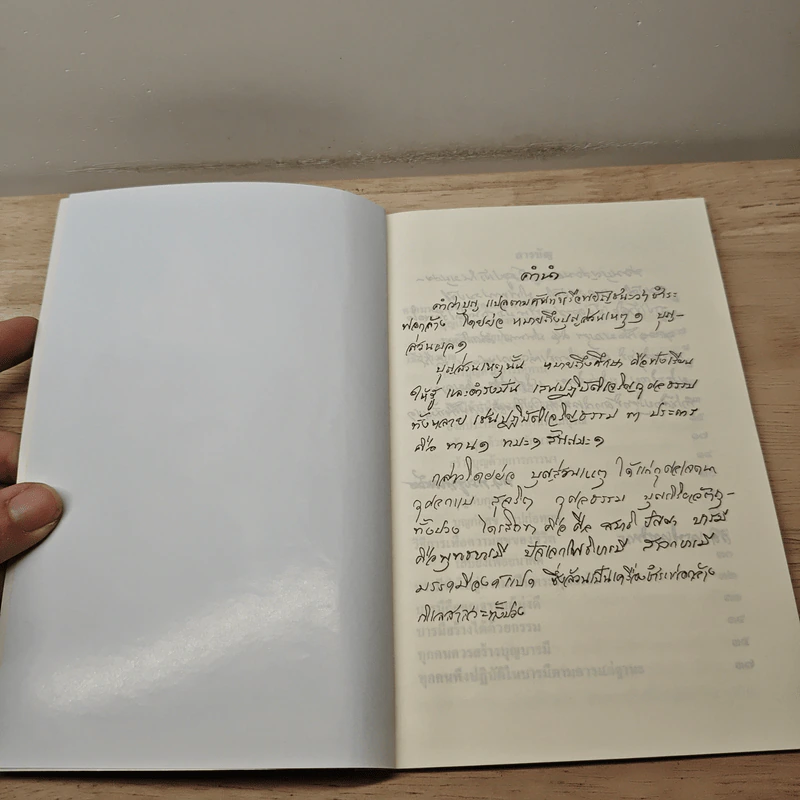 คำนำ
คำว่าบุญ แปลตามศัพท์หรือพยัญชนะว่าชำระ
ฟอกล้าง โดยย่อ หมายถึงบุญส่วนเหตุ ๑ บุญ-
ส่วนผล ๑
บุญส่วนเหตุนั้น หมายถึงศึกษา คือทั้งเรียน
ให้รู้ และดำรงมั่น เสพปฏิบัติเจริญกุศลธรรม
ทั้งหลาย เช่นปฏิบัติเจริญธรรม ๓ ประการ
คือ ทาน ๑ ทมะ ๑ สัญญมะ ๑
กล่าวโดยย่อ บุญส่วนเหตุ ได้แก่กุศลเจตนา
กุศลกรรม สุจริต กุศลธรรม
ทั้งปวง ไตรสิกขา คือ ศีล สมาธิ ปัญญา บารมี
คือพุทธบารมี ปัจเจกโพธิบารมี สาวกบารมี
มรรคมีองค์แปด ซึ่งล้วนเป็นเครื่องชำระฟอกล้าง
กิเลสาสวะทั้งปวง
บารมีสร้างได้ด้วยกรรม
ทุกคนควรสร้างบุญบารมี